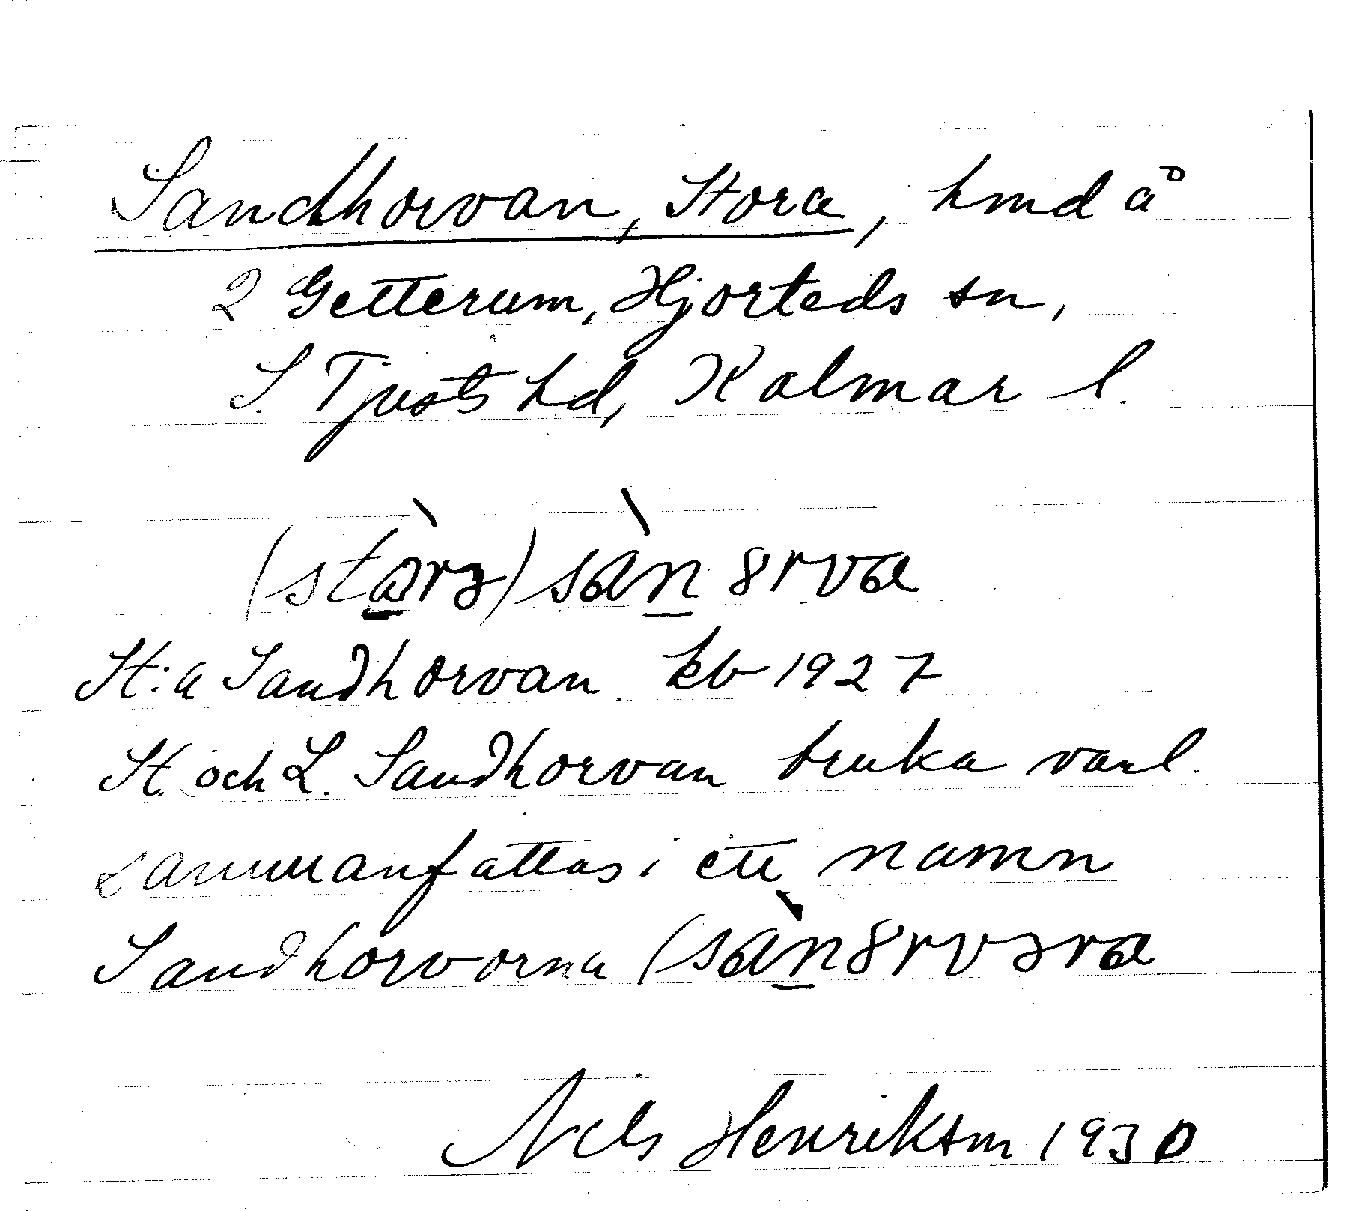 Sandhorvan, Stora, hmd å
2 Getterum, Hjorteds sn,
S. Tjusts hd, Kalmar l.
(stòrə) sàn 8rva
St:a Sandhorvan kb 1927
St. och L. Sandhorvan bruka vanl.
sammanfattas i ett namn
Sandhorvorna (sàn8rvəra
Nils Henriksson 1930